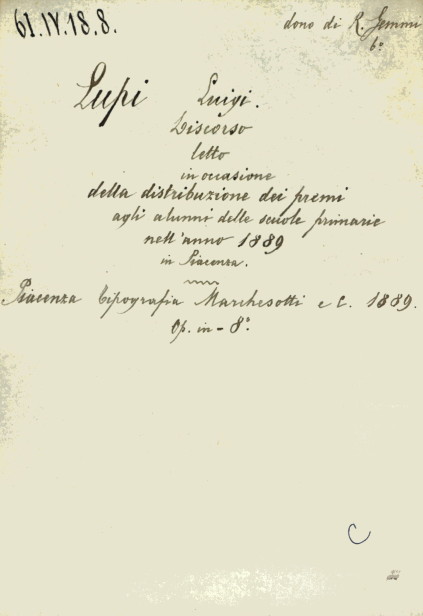 61.IV.18.8.
dono di R.
6º
Lupi Luigi.
Discorso
letto
in occasione
della distribuzione dei premi
agli alunni delle scuole primarie
nell'anno 1889
in Piacenza.
Piacenza Tipografia Marchesotti e C. 1889.
Op. in-8º.
C